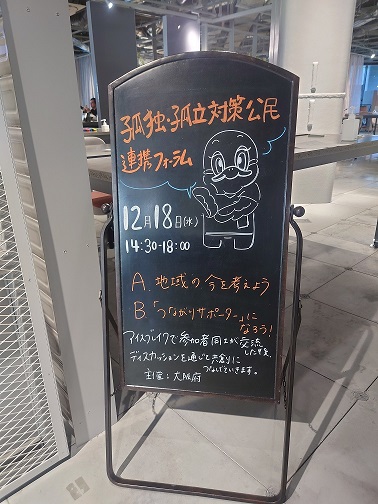 孤独・孤立対策公民
連携フォーラム
12月18日(水)
14:30-18:00
A. 地域の今を考えよう
B.「つながりサポーター」に
なろう!
アイスブレイクで参加者同士が交流
した後、
ディスカッションを通じて共創に
つなげていきます。
主催:大阪府